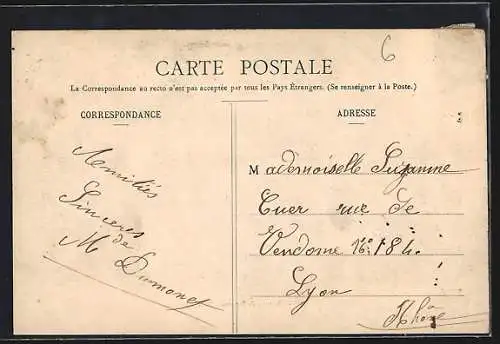 6
CARTE POSTALE
La Correspondance au recto n'est pas acceptée par tous les Pays Étrangers. (Se renseigner à la Poste.)
CORRESPONDANCE
ADRESSE
Amitiés
Sinceres
de
M Dumoney
Mademoiselle Suzanne
Cuer rue de
Vendome 184.
Lyon
Rhône